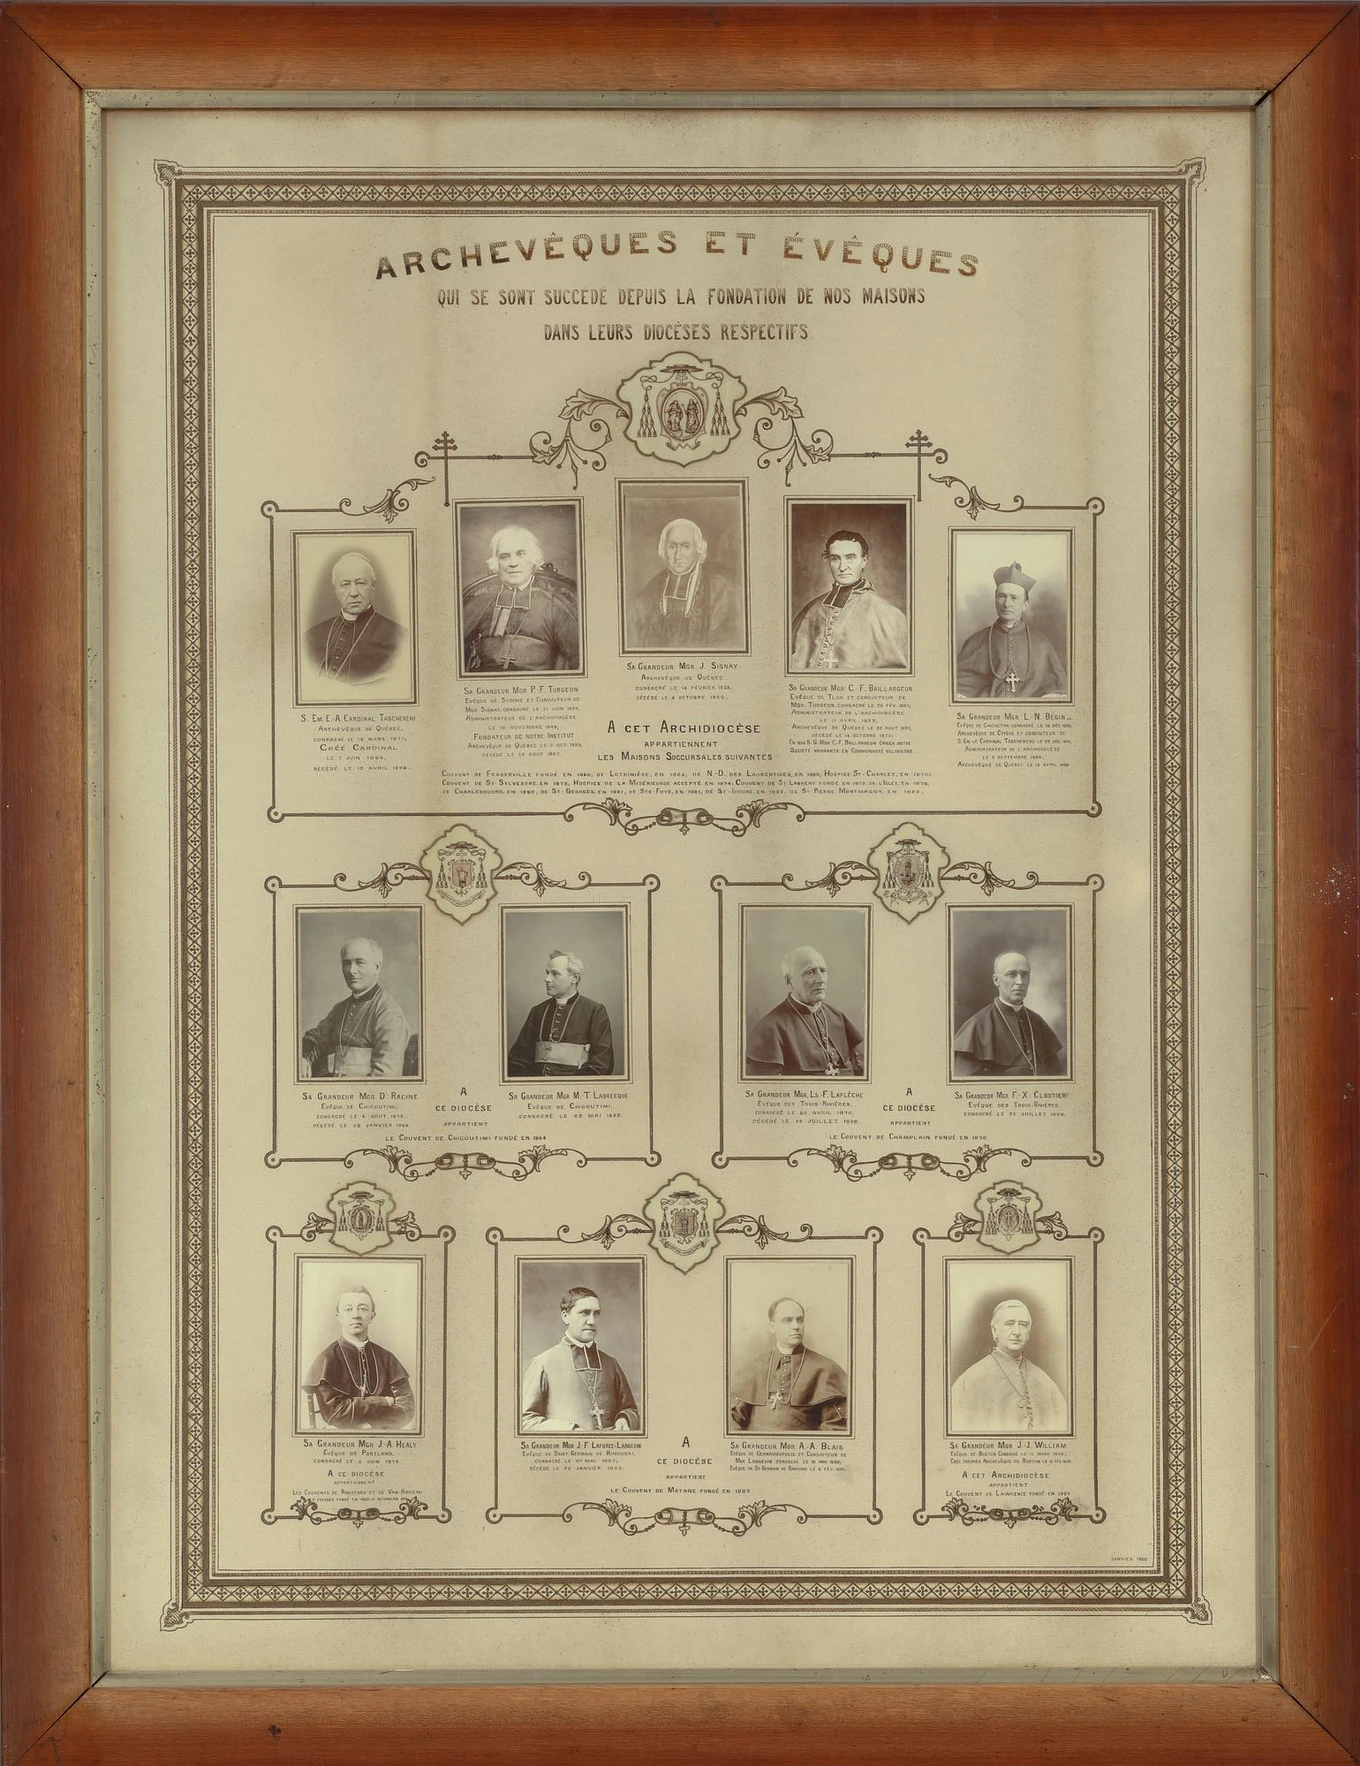 ARCHEVÊQUES ET ÉVÊQUES
QUI SE SONT SUCCÉDÉ DEPUIS LA FONDATION DE NOS MAISONS
DANS LEURS DIOCÈSES RESPECTIFS
S. EM. E.-A. CARDINAL TASCHEREAU
ARCHEVÊQUE DE QUÉBEC,
CONSACRÉ LE 19 MARS 1871,
CRÉÉ CARDINAL
LE 7 JUIN 1886,
DÉCÉDÉ LE 12 AVRIL 1898.
SA GRANDEUR MGR P.-F. TURGEON
EVÊQUE DE SYDIME ET COADJUTEUR DE
MGR. SIGNAY, CONSACRÉ LE 11 JUIN 1834,
ADMINISTRATEUR DE L'ARCHIDIOCÈSE
LE 10 NOVEMBRE 1849,
FONDATEUR DE NOTRE INSTITUT
ARCHEVÊQUE DE QUÉBEC LE 3 OCT. 1850,
DÉCÉDÉ LE 25 AOUT 1867.
SA GRANDEUR MGR J. SIGNAY
ARCHEVÊQUE DE QUÉBEC
CONSACRÉ LE FÉVRIER 1833.
DÉCÉDÉ LE OCTOBRE 1850.
SA GRANDEUR MGR C.-F. BAILLARGEON
EVÊQUE DE TLOA ET COADJUTEUR DE
MGR. TURGEON, CONSACRÉ LE 23 FÉV. 1851,
ADMINISTRATEUR DE L'ARCHIDIOCÈSE
LE 11 AVRIL 1855,
ARCHEVÊQUE DE QUÉBEC LE AOUT 1867,
DÉCÉDÉ LE 13 OCTOBRE 1870.
EN 1855 S. G. MGR C.-F. BAILLARGEON ÉRIGEA NOTRE
SOCIÉTÉ NAISSANTE EN COMMUNAUTÉ RELIGIEUSE
SA GRANDEUR MGR L.-N. BÉGIN
EVÊQUE DE CHICOUTIMI CONSACRÉ LE 28 OCT. 1888,
ARCHEVÊQUE DE CYRÈNE ET COADJUTEUR DE
S. EM. LE CARDINAL TASCHEREAU LE DÉC. 1891,
ADMINISTRATEUR DE L'ARCHIDIOCÈSE
LE 3 SEPTEMBRE 1894,
ARCHEVÊQUE DE QUÉBEC LE 12 AVRIL 1898.
A CET ARCHIDIOCÈSE
APPARTIENNENT
LES MAISONS SUCCURSALES SUIVANTES
COUVENT DE FRASERVILLE FONDÉ EN DE LOTBINIÈRE, EN DE N.-D. DES LAURENTIDES, EN HOSPICE ST-CHARLES, EN 1870;
COUVENT DE ST-SYLVESTRE, EN HOSPICE DE LA MISÉRICORDE ACCEPTÉ EN 1874; COUVENT DE ST-LAURENT FONDÉ EN DE L'ISLET, EN
DE CHARLESBOURG, EN DE ST-GEORGES, EN 1881, DE STE-FOYE, EN 1881, DE ST-ISIDORE, EN DE ST-PIERRE MONTMAGNY, EN
SA GRANDEUR MGR D. RACINE
EVÊQUE DE CHICOUTIMI,
CONSACRÉ LE 4 AOUT 1878,
DÉCÉDÉ LE 28 JANVIER 1888.
SA GRANDEUR MGR M.-T. LABRECQUE
EVÊQUE DE CHICOUTIMI,
CONSACRÉ LE 22 MAI 1892.
A
CE DIOCÈSE
APPARTIENT
LE COUVENT DE CHICOUTIMI FONDÉ EN 1864
SA GRANDEUR MGR LS-F. LAFLÈCHE
EVÊQUE DES TROIS-RIVIÈRES,
CONSACRÉ LE AVRIL 1870,
DÉCÉDÉ LE 14 JUILLET 1898.
SA GRANDEUR MGR F.-X. CLOUTIER
EVÊQUE DES TROIS-RIVIÈRES,
CONSACRÉ LE 25 JUILLET 1899.
A
CE DIOCÈSE
APPARTIENT
LE COUVENT DE CHAMPLAIN FONDÉ EN 1870
SA GRANDEUR MGR J.-A. HEALY
EVÊQUE DE PORTLAND,
CONSACRÉ LE 2 JUIN 1875.
A CE DIOCÈSE
APPARTIENNENT
LES COUVENTS DE BIDDEFORD ET DE VAN-BUREN
SA GRANDEUR MGR J.-F. LAFORCE-LANGEVIN
EVÊQUE DE SAINT-GERMAIN DE RIMOUSKI,
CONSACRÉ LE 1ER MAI 1867,
DÉCÉDÉ LE 26 JANVIER 1892.
SA GRANDEUR MGR A.-A. BLAIS
EVÊQUE DE GERMANICOPOLIS ET COADJUTEUR DE
MGR LANGEVIN, CONSACRÉ LE 18 MAI 1890,
EVÊQUE DE ST-GERMAIN DE RIMOUSKI LE 6 FÉV. 1891.
A
CE DIOCÈSE
APPARTIENT
LE COUVENT DE MATANE FONDÉ EN
SA GRANDEUR MGR J.-J. WILLIAM
EVÊQUE DE BOSTON CONSACRÉ LE 11 MARS 1866,
CRÉÉ PREMIER ARCHEVÊQUE DE BOSTON LE 12 FÉV.
A CET ARCHIDIOCÈSE
APPARTIENT
LE COUVENT DE LAWRENCE FONDÉ EN
JANVIER 1900